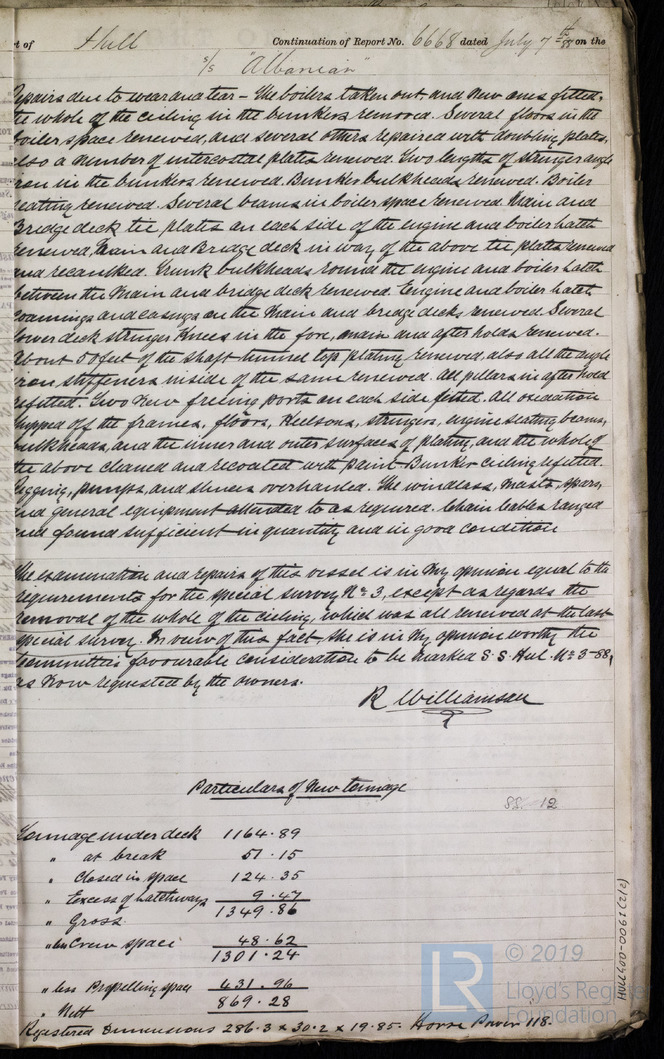 rt of Hull Continuation of Report No. 6668 dated July 7th 88 on the
s/s "Albanian"
Repairs due to wear and tear - The boilers taken out, and new ones fitted,
the whole of the ceiling in the bunkers removed. Several floors in the
boiler space renewed, and several others repaired with doubling plates,
also a number of intercostal plates renewed. Two lengths of stringer angle
iron in the bunkers renewed. Bunker bulkheads renewed. Boiler
seating renewed. Several beams in boiler space renewed. Main and
Bridge deck tie plates on each side of the engine and boiler hatch
renewed, Main and Bridge deck in way of the above tie plates renewed
and recaulked. Trunk bulkheads round the engine and boiler hatch
between the Main and bridge deck renewed. Engine and boiler hatch
coamings and casings on the Main and bridge decks renewed. Several
lower deck stringer knees in the fore, main and after holds renewed.
About 50 feet of the shaft tunnel top plating renewed, also all the angle
iron stiffeners inside of the same renewed. All pillars in after hold
refitted. Two new freeing ports on each side fitted. All oxidation
chipped off the frames, floors, Keelsons, stringers, engine seating beams,
bulkheads, and the inner and outer surfaces of plating, and the whole of
the above cleaned and recoated with paint. Bunker ceiling refitted.
Rigging, pumps, and sluices overhauled. The windlass, masts, spars,
and general equipment attended to as required. Chain cables ranged
and found sufficient in quantity and in good condition
The examination and repairs of this vessel is in my opinion equal to the
requirements for the special survey No 3, except as regards the
removal of the whole of the ceiling, which was all renewed at the last
special survey. In view of this fact, she is in my opinion worthy the
Committee's favourable consideration to be marked S.S. Hul. No 3-88,
as now requested by the owners.
R Williamson
Particulars of New tonnage
88 12
Tonnage under deck 1164.89
" at break 51.15
" Closed in space 124.35
" Excess of hatchways 9.47
" Gross 1349.86
" less Crew space 48.62
1301.24
" less Propelling space 431.96
" Nett 869.28
Registered Dimensions 286.3 x 30.2 x 19.85. Horse Power 118.
HUL400-0061 (2/2)
LR © 2019
Lloyd's Register
Foundation